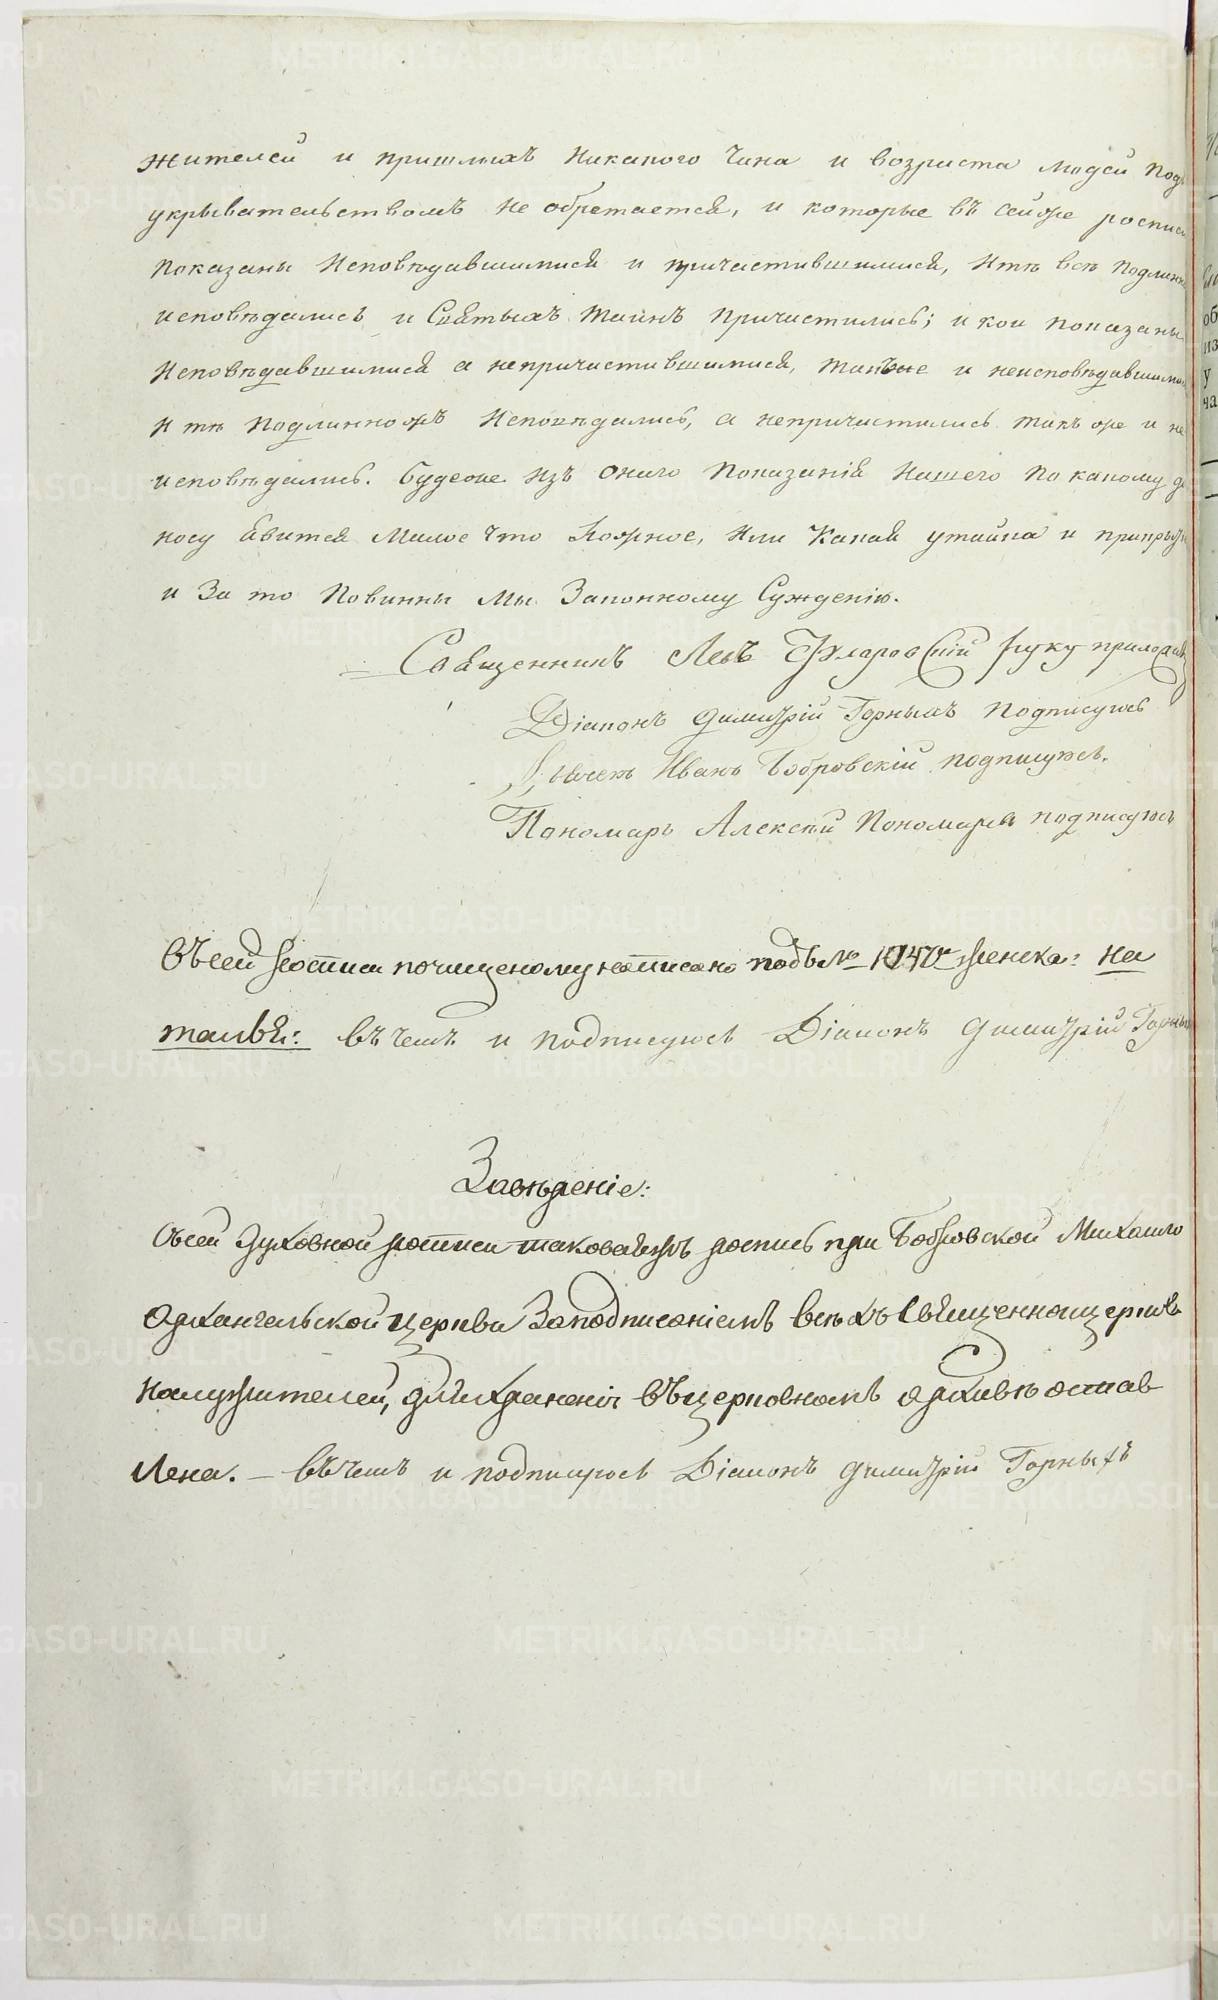 жителей и пришлыхъ никакого чина и возраста людей подъ
укрывательствомъ не обретается, и которые въ сей же росписи
показаны исповѣдавшимися и причастившимися, и тѣ всѣ подлинно
исповѣдались и Святыхъ Таинъ причастились; и кои показаны
исповѣдавшимися а непричастившимися, также и неисповѣдавшимися
и тѣ подлинножъ исповѣдались, а непричастились такъ же и не
исповѣдались. Будеже изъ онаго показанія нашего по какому до
носу явится малое что ложное, или какая утайка и прикрытіе
и за то повинны мы законному сужденію.
Священникъ Левъ руку приложилъ
Діаконъ Димитрій Горныхъ подписуюсь
Иванъ Бобровскій подписуюсь.
Пономарь Алексѣй Пономаревъ подписуюсь
Въ сей росписи почищеному написано подъ № женска: На
талья: въ чемъ и подписуюсь Діаконъ Димитрій Горныхъ
Завѣреніе:
О сей духовной росписи таковаяжъ роспись при Бобровской Михаило
Архангельской церкви за подписаніемъ всѣхъ священноцерковь
нослужителей, для храненія въ церковномъ архивѣ остав
лена. – въ чемъ и подписуюсь Діаконъ Димитрій Горныхъ
METRIKI.GASO-URAL.RU